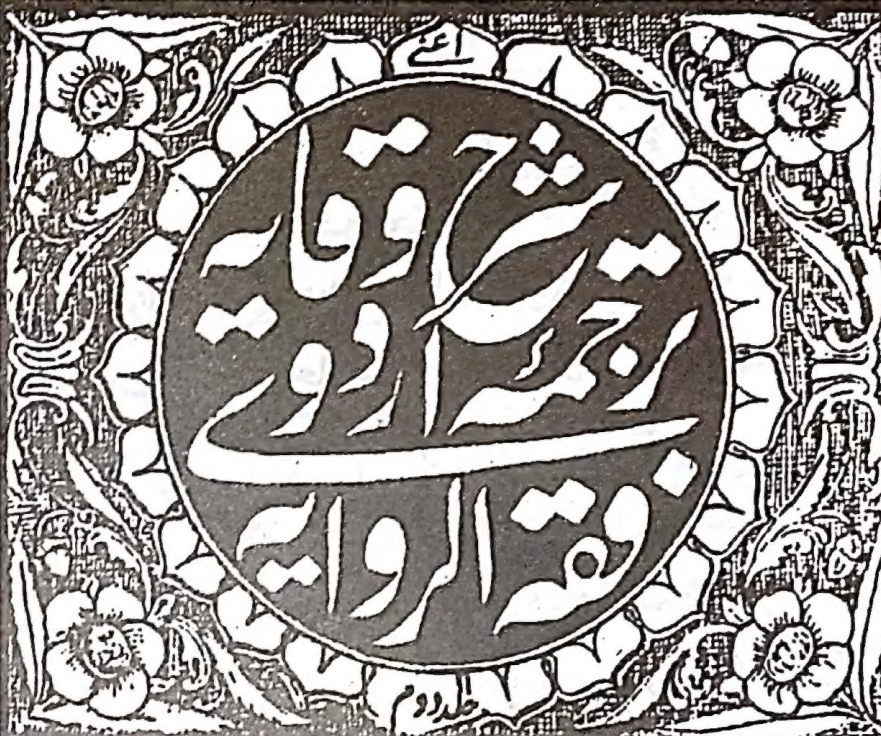 اعنے
شرح وقایہ
ترجمۂ اردوے
فقہ الروایہ
جلد دوم